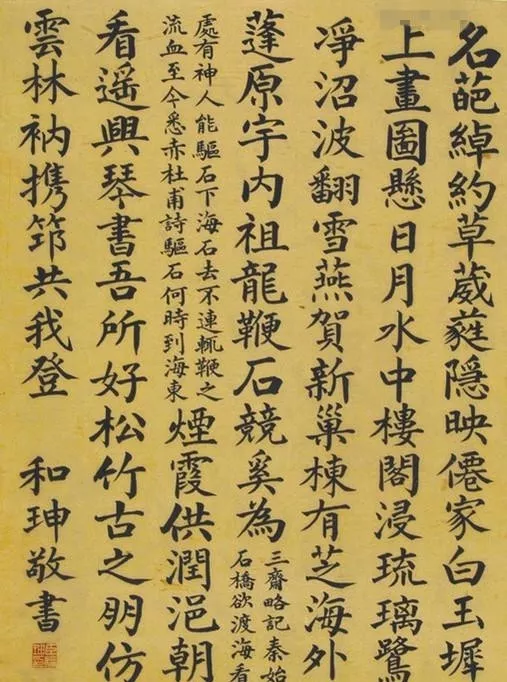 名葩綽約草葳蕤隱映僊家白玉墀
上畫圖懸日月水中樓閣浸琉璃鷺
凈沼波翻雪燕賀新巢棟有芝海外
蓬原宇内祖龍鞭石競奚為
三齋略記秦始
石橋欲渡海看
處有神人能驅石下海石去不連輒鞭之
流血至今悉赤杜甫詩驅石何時到海東
煙霞供潤浥朝
看遙興琴書吾所好松竹古之朋仿
雲林衲携筇共我登 和珅敬書